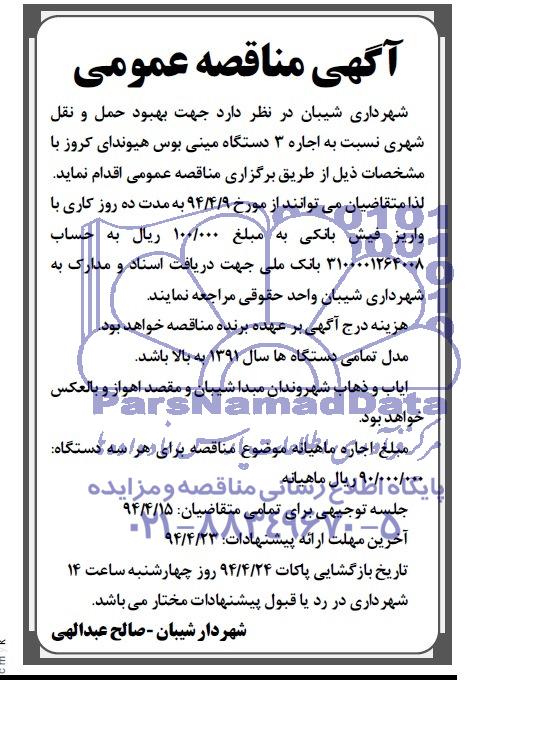 آگهی مناقصه عمومی
شهرداری شیبان در نظر دارد جهت بهبود حمل و نقل
شهری نسبت به اجاره ۳ دستگاه مینی بوس هیوندای کروز با
مشخصات ذیل از طریق برگزاری مناقصه عمومی اقدام نماید.
لذا متقاضیان می توانند از مورخ ۹۴/۴/۹ به مدت ده روز کاری با
واریز فیش بانکی به مبلغ ۱۰۰/۰۰۰ ریال به حساب
۳۱۰۰۰۰۱۲۶۴۰۰۸ بانک ملی جهت دریافت اسناد و مدارک به
شهرداری شیبان واحد حقوقی مراجعه نمایند.
هزینه درج آگهی بر عهده برنده مناقصه خواهد بود.
مدل تمامی دستگاه ها سال ۱۳۹۱ به بالا باشد.
ایاب و ذهاب شهروندان مبدا شیبان و مقصد اهواز و بالعکس
ParsNamadData
خواهد بود.
مبلغ اجاره ماهیانه موضوع مناقصه برای هر سه دستگاه:
۹۰/۰۰۰/۰۰۰ ریال ماهیانه
پایگاه اطلاع رسانی مناقصه و مزایده
جلسه توجیهی برای تمامی متقاضیان: ۹۴/۴/۱۵
۰۲۱-۸۸۳۴۹۶۷۰-۵
آخرین مهلت ارائه پیشنهادات: ۹۴/۴/۲۳
تاریخ بازگشایی پاکات ۹۴/۴/۲۴ روز چهارشنبه ساعت ۱۴
شهرداری در رد یا قبول پیشنهادات مختار می باشد.
شهردار شیبان -صالح عبدالهی